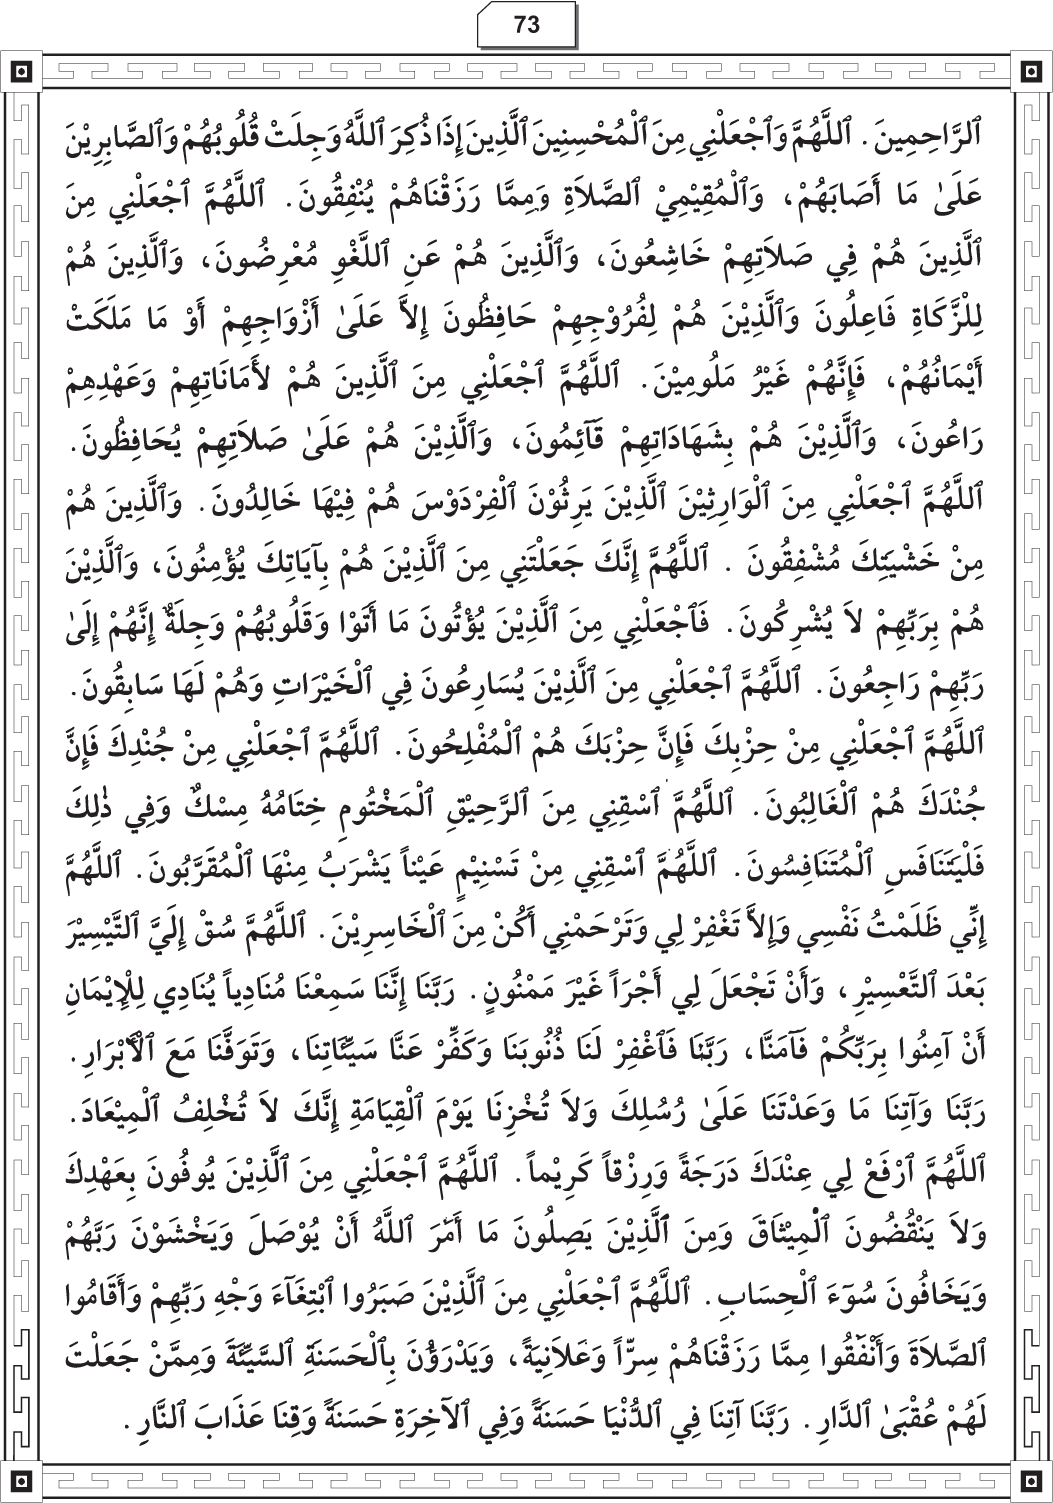 73
ٱلرَّاحِمِينَ. ٱللَّهُمَّ وَٱجْعَلْنِي مِنَ ٱلْمُحْسِنِينَ ٱلَّذِينَ إِذَا ذُكِرَ ٱللَّهُ وَجِلَتْ قُلُوبُهُمْ وَٱلصَّابِرِيْنَ
عَلَىٰ مَا أَصَابَهُمْ، وَٱلْمُقِيْمِيْ ٱلصَّلاَةِ وَمِمَّا رَزَقْنَاهُمْ يُنْفِقُونَ. ٱللَّهُمَّ ٱجْعَلْنِي مِنَ
ٱلَّذِينَ هُمْ فِي صَلاَتِهِمْ خَاشِعُونَ، وَٱلَّذِينَ هُمْ عَنِ ٱللَّغْوِ مُعْرِضُونَ، وَٱلَّذِينَ هُمْ
لِلْزَّكَاةِ فَاعِلُونَ وَٱلَّذِيْنَ هُمْ لِفُرُوْجِهِمْ حَافِظُونَ إِلاَّ عَلَىٰ أَزْوَاجِهِمْ أَوْ مَا مَلَكَتْ
أَيْمَانُهُمْ، فَإِنَّهُمْ غَيْرُ مَلُومِيْنَ. ٱللَّهُمَّ ٱجْعَلْنِي مِنَ ٱلَّذِينَ هُمْ لأَمَانَاتِهِمْ وَعَهْدِهِمْ
رَاعُونَ، وَٱلَّذِيْنَ هُمْ بِشَهَادَاتِهِمْ قَآئِمُونَ، وَٱلَّذِيْنَ هُمْ عَلَىٰ صَلاَتِهِمْ يُحَافِظُونَ.
ٱللَّهُمَّ ٱجْعَلْنِي مِنَ ٱلْوَارِثِيْنَ ٱلَّذِيْنَ يَرِثُوْنَ ٱلْفِرْدَوْسَ هُمْ فِيْهَا خَالِدُونَ. وَٱلَّذِينَ هُمْ
مِنْ خَشْيَتِكَ مُشْفِقُونَ . ٱللَّهُمَّ إِنَّكَ جَعَلْتَنِي مِنَ ٱلَّذِيْنَ هُمْ بِآيَاتِكَ يُؤْمِنُونَ، وَٱلَّذِيْنَ
هُمْ بِرَبِّهِمْ لاَ يُشْرِكُونَ. فَٱجْعَلْنِي مِنَ ٱلَّذِيْنَ يُؤْتُونَ مَا أَتَوْا وَقَلُوبُهُمْ وَجِلَةٌ إِنَّهُمْ إِلَىٰ
رَبِّهِمْ رَاجِعُونَ. ٱللَّهُمَّ ٱجْعَلْنِي مِنَ ٱلَّذِيْنَ يُسَارِعُونَ فِي ٱلْخَيْرَاتِ وَهُمْ لَهَا سَابِقُونَ.
ٱللَّهُمَّ ٱجْعَلْنِي مِنْ حِزْبِكَ فَإِنَّ حِزْبَكَ هُمْ ٱلْمُفْلِحُونَ. ٱللَّهُمَّ ٱجْعَلْنِي مِنْ جُنْدِكَ فَإِنَّ
جُنْدَكَ هُمْ ٱلْغَالِبُونَ. ٱللَّهُمَّ ٱسْقِنِي مِنَ ٱلرَّحِيْقِ ٱلْمَخْتُومِ خِتَامُهُ مِسْكٌ وَفِي ذٰلِكَ
فَلْيَتَنَافَسِ ٱلْمُتَنَافِسُونَ. ٱللَّهُمَّ ٱسْقِنِي مِنْ تَسْنِيْمٍ عَيْناً يَشْرَبُ مِنْهَا ٱلْمُقَرَّبُونَ. ٱللَّهُمَّ
إِنِّي ظَلَمْتُ نَفْسِي وَإِلاَّ تَغْفِرْ لِي وَتَرْحَمْنِي أَكُنْ مِنَ ٱلْخَاسِرِيْنَ. ٱللَّهُمَّ سُقْ إِلَيَّ ٱلتَّيْسِيْرَ
بَعْدَ ٱلتَّعْسِيْرِ، وَأَنْ تَجْعَلَ لِي أَجْرَاً غَيْرَ مَمْنُونٍ. رَبَّنَا إِنَّنَا سَمِعْنَا مُنَادِياً يُنَادِي لِلْإِيْمَانِ
أَنْ آمِنُوا بِرَبِّكُمْ فَآمَنَّا، رَبَّنَا فَٱغْفِرْ لَنَا ذُنُوبَنَا وَكَفِّرْ عَنَّا سَيِّئَاتِنَا، وَتَوَفَّنَا مَعَ ٱلْأَبْرَارِ.
رَبَّنَا وَآتِنَا مَا وَعَدْتَنَا عَلَىٰ رُسُلِكَ وَلاَ تُخْزِنَا يَوْمَ ٱلْقِيَامَةِ إِنَّكَ لاَ تُخْلِفُ ٱلْمِيْعَادَ.
ٱللَّهُمَّ ٱرْفَعْ لِي عِنْدَكَ دَرَجَةً وَرِزْقاً كَرِيْماً. ٱللَّهُمَّ ٱجْعَلْنِي مِنَ ٱلَّذِيْنَ يُوفُونَ بِعَهْدِكَ
وَلاَ يَنْقُضُونَ ٱلْمِيْثَاقَ وَمِنَ ٱلَّذِيْنَ يَصِلُونَ مَا أَمَرَ ٱللَّهُ أَنْ يُوْصَلَ وَيَخْشَوْنَ رَبَّهُمْ
وَيَخَافُونَ سُوٓءَ ٱلْحِسَابِ. ٱللَّهُمَّ ٱجْعَلْنِي مِنَ ٱلَّذِيْنَ صَبَرُوا ٱبْتِغَآءَ وَجْهِ رَبِّهِمْ وَأَقَامُوا
ٱلصَّلاَةَ وَأَنْفَقُوا مِمَّا رَزَقْنَاهُمْ سِرّاً وَعَلاَنِيَةً، وَيَدْرَؤُنَ بِٱلْحَسَنَةِ ٱلسَّيِّئَةَ وَمِمَّنْ جَعَلْتَ
لَهُمْ عُقْبَىٰ ٱلدَّارِ. رَبَّنَا آتِنَا فِي ٱلدُّنْيَا حَسَنَةً وَفِي ٱلآخِرَةِ حَسَنَةً وَقِنَا عَذَابَ ٱلنَّارِ.